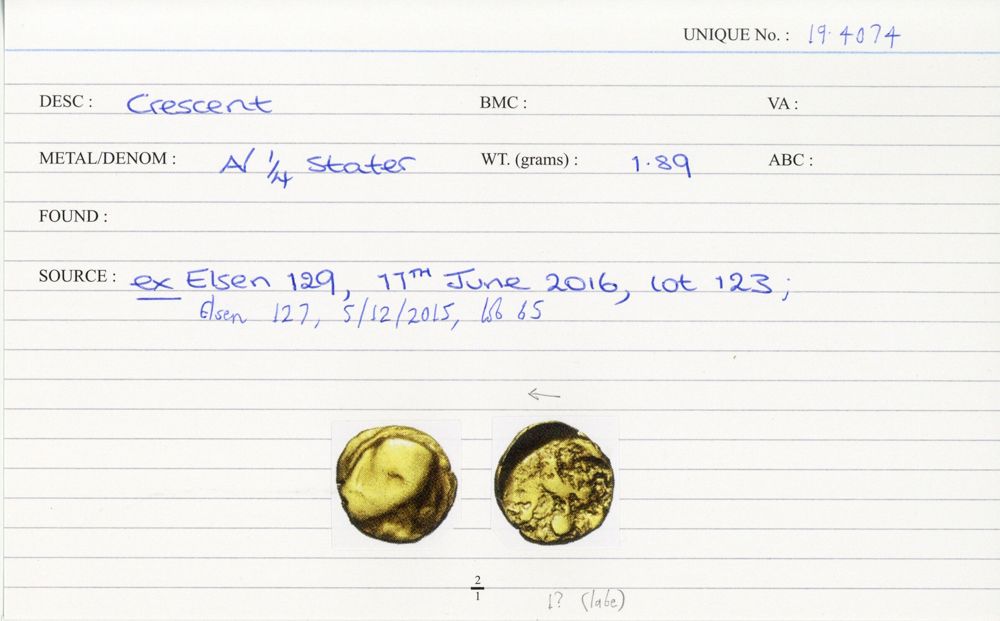 UNIQUE No. : 19.4074
DESC : Crescent BMC : VA :
METAL/DENOM : A/ 1/4 Stater WT. (grams) : 1.89 ABC :
FOUND :
SOURCE : ex Elsen 129, 11TH June 2016, lot 123;
Elsen 127, 5/12/2015, lot 65
←
2/1
1? (late)